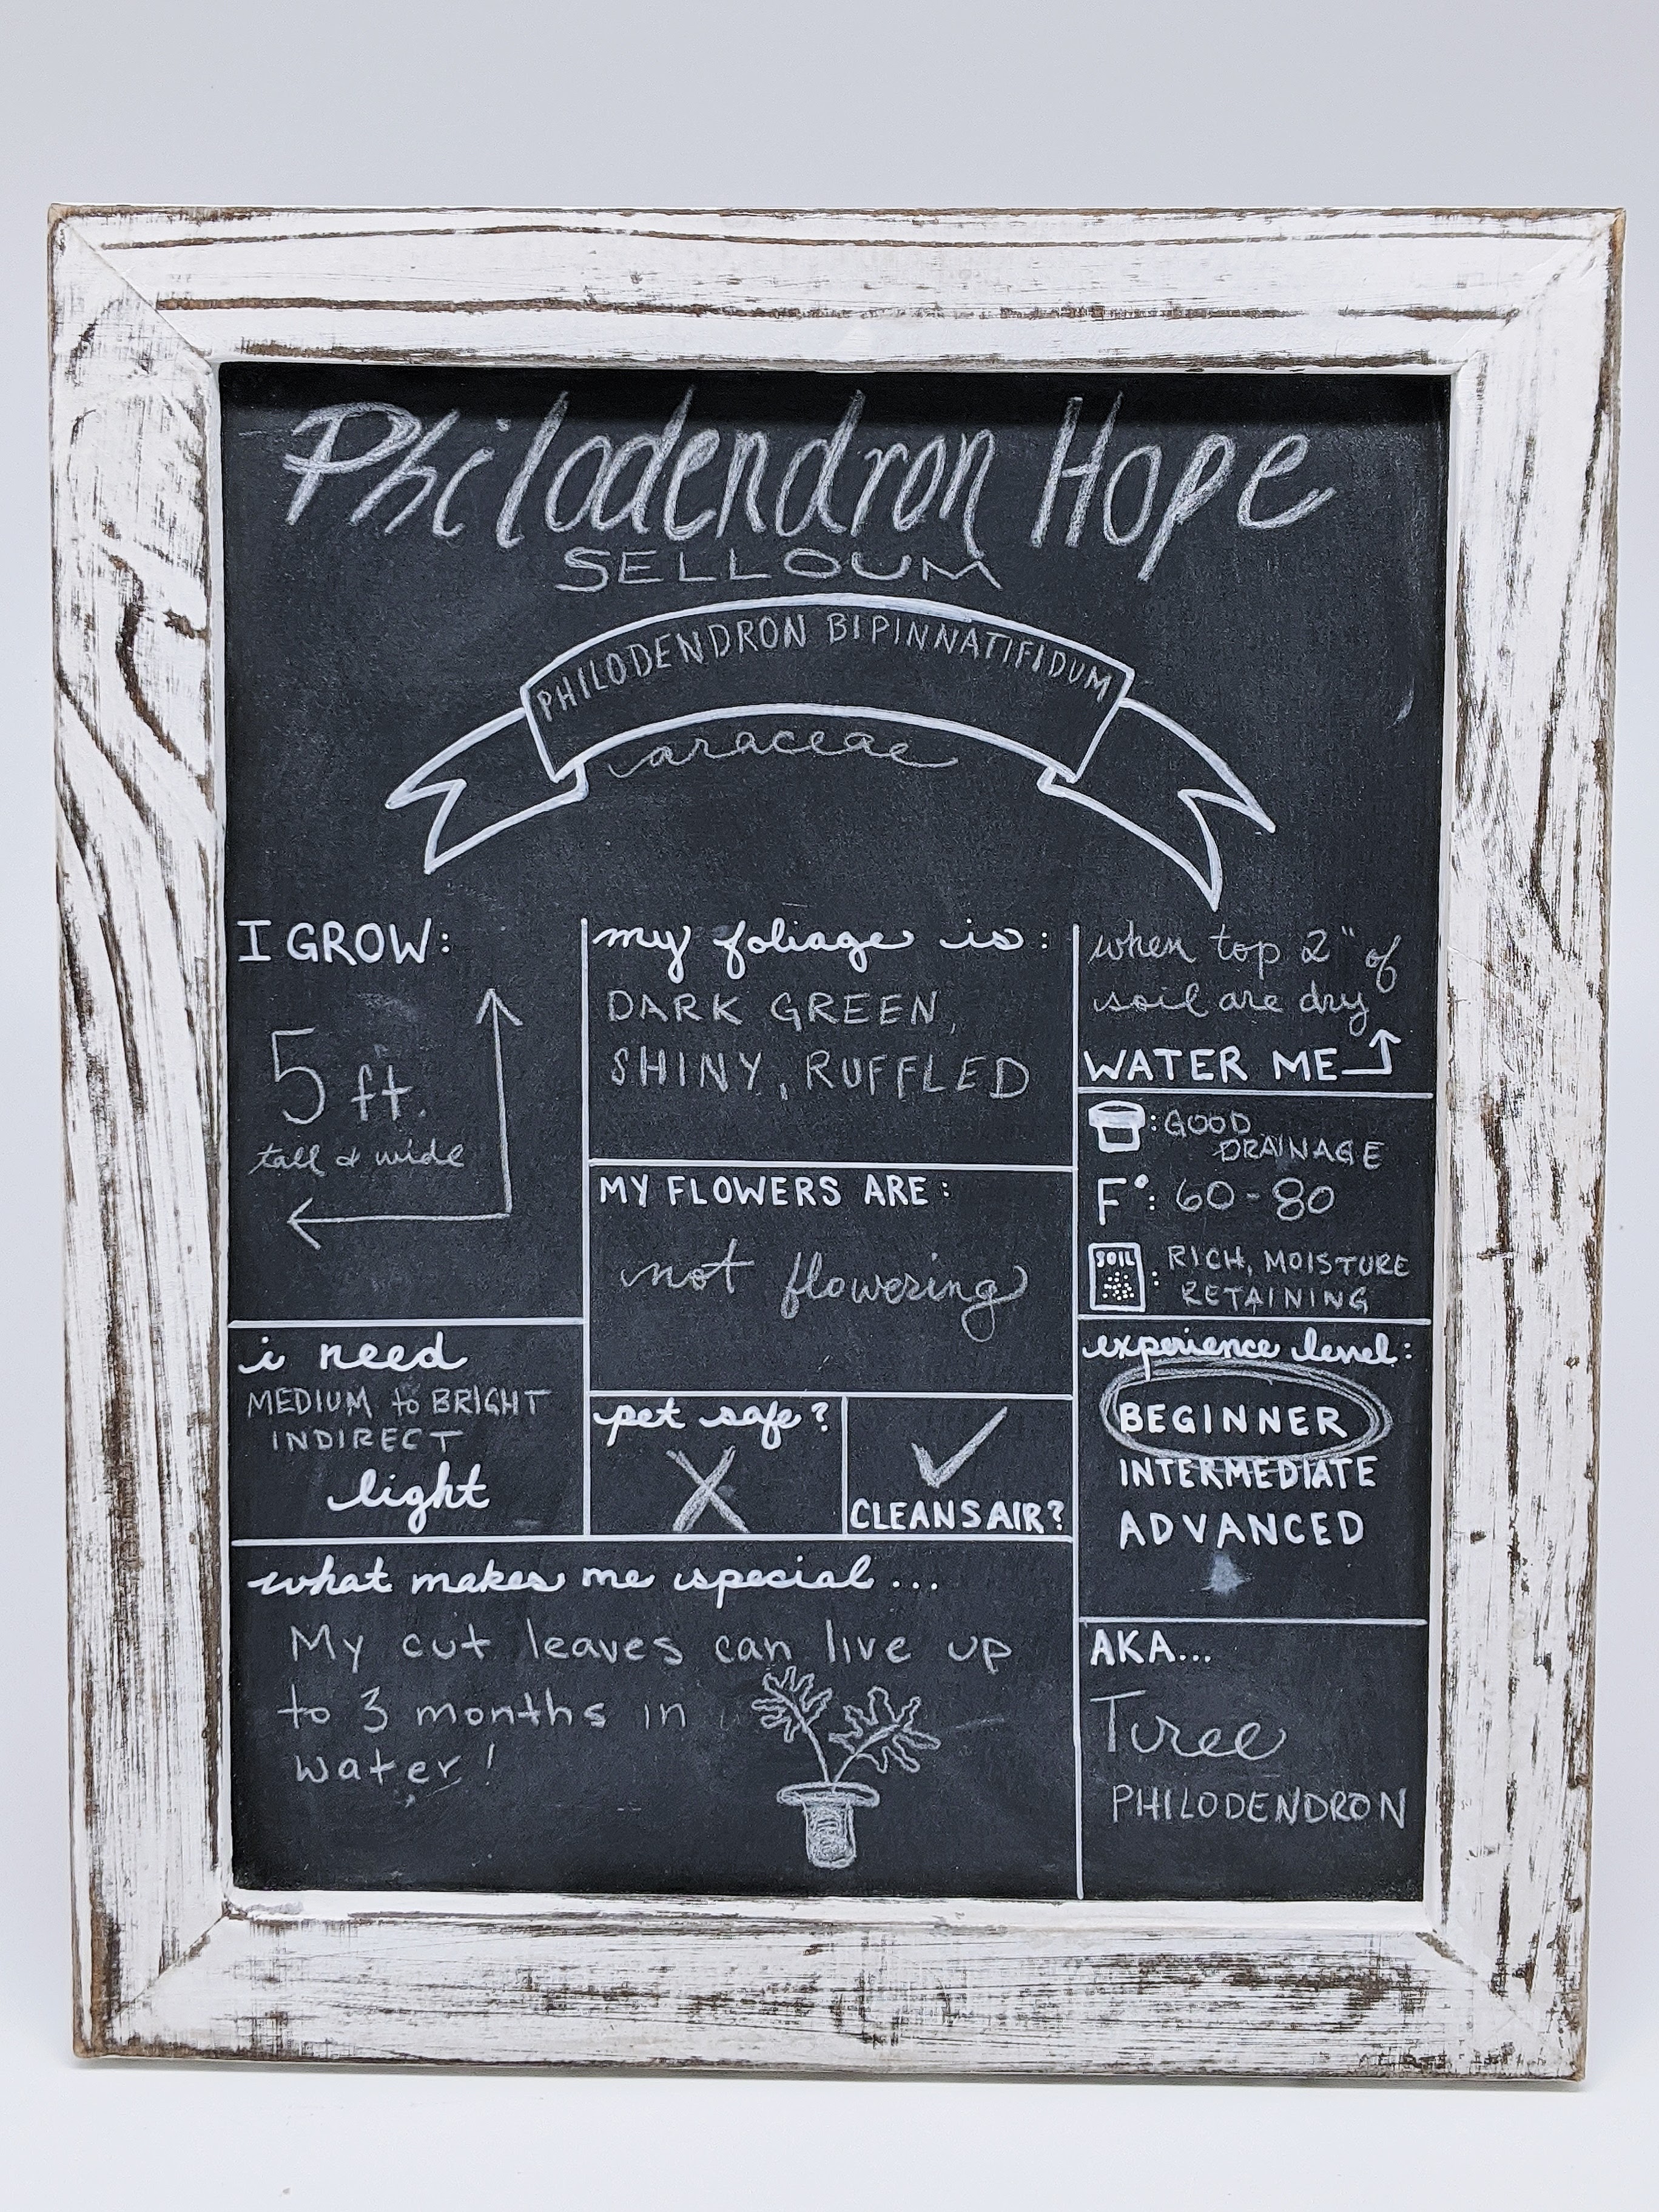 Philodendron Hope
SELLOUM
PHILODENDRON BIPINNATIFIDUM
araceae
I GROW:
5 ft.
tall & wide
i need
MEDIUM to BRIGHT
INDIRECT
light
my foliage is:
DARK GREEN,
SHINY, RUFFLED
MY FLOWERS ARE:
not flowering
pet safe?
CLEANS AIR?
when top 2" of
soil are dry
WATER ME
: GOOD
DRAINAGE
F°: 60-80
SOIL : RICH, MOISTURE
RETAINING
experience level:
BEGINNER
INTERMEDIATE
ADVANCED
what makes me special...
My cut leaves can live up
to 3 months in
water!
AKA...
Tree
PHILODENDRON